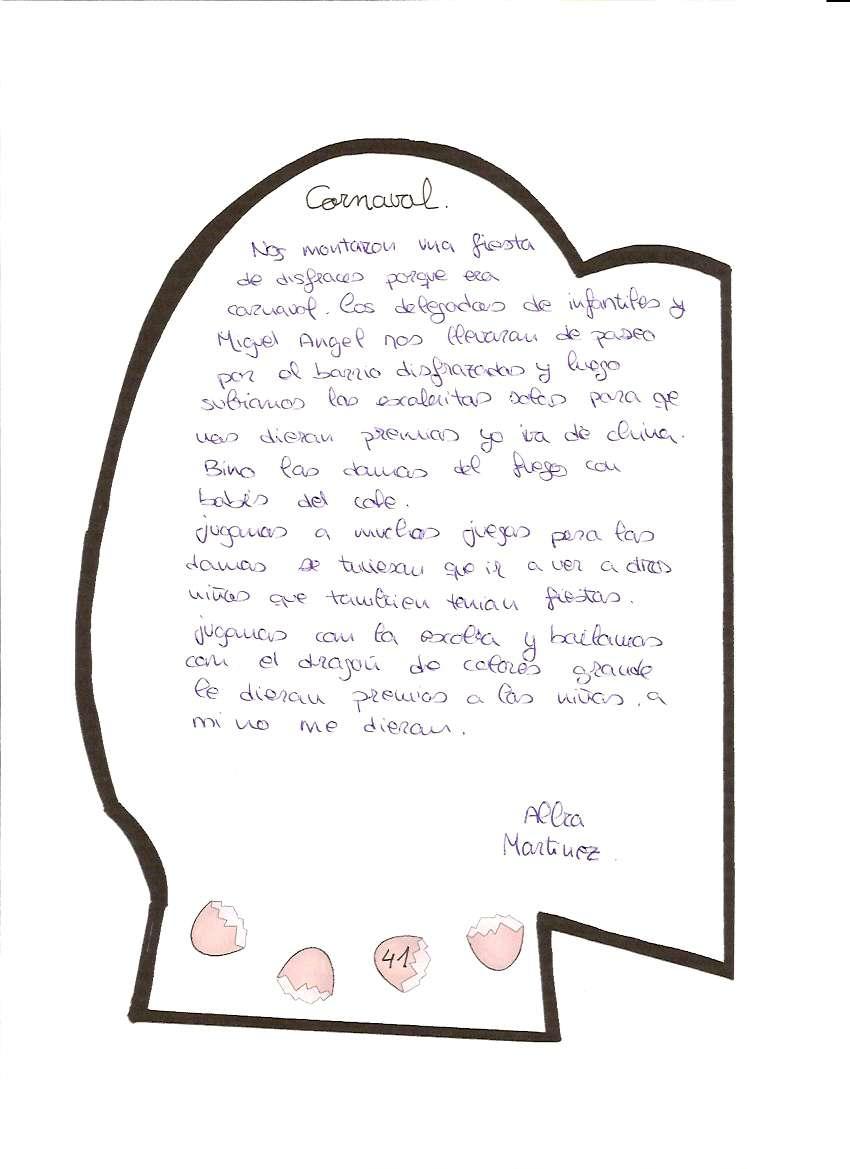 Carnaval.
Nos montaron una fiesta
de disfraces porque era
carnaval. los delegados de infantiles y
Miguel Angel nos llevaran de paseo
por el barrio disfrazados y luego
subiamos las exaleritas solos para que
nos dieran premios yo iva de china.
Bino las damas del fuego con
babés del cole.
jugamos a muchos juegos pero las
damas se tuvieran que ir a ver a otros
niños que tambien tenian fiestas.
jugamos con la excolta y bailamos
con el dragón de colores grande
le dieran premios a los niños. a
mi no me dieran.
Alba
Martinez.
41